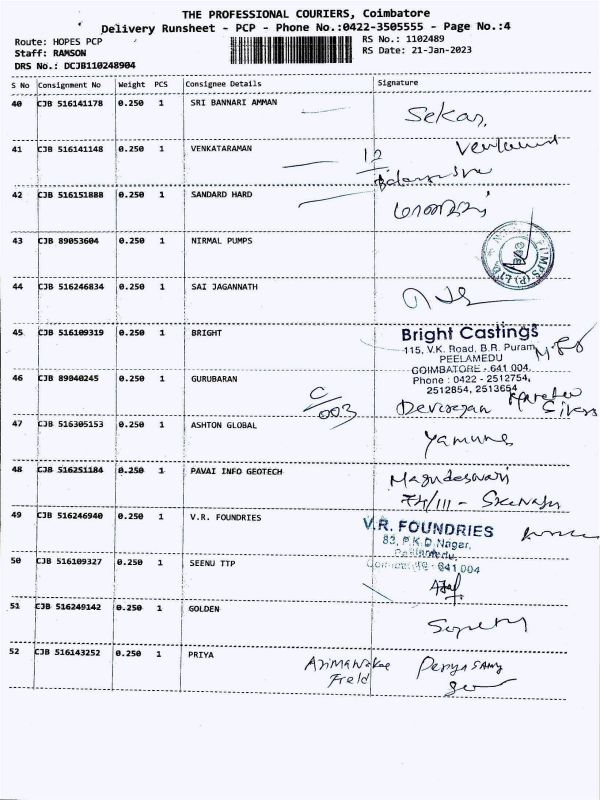 THE PROFESSIONAL COURIERS, Coimbatore
Delivery Runsheet - PCP - Phone No.:0422-3505555 - Page No.:4
Route: HOPES PCP
Staff: RAMSON
DRS No.: DCJB110248904
RS No.: 1102489
RS Date: 21-Jan-2023
S No Consignment No Weight PCS Consignee Details Signature
40 CJB 516141178 0.250 1 SRI BANNARI AMMAN Sekar
41 CJB 516141148 0.250 1 VENKATARAMAN 12
42 CJB 516151888 0.250 1 SANDARD HARD
43 CJB 89053604 0.250 1 NIRMAL PUMPS
44 CJB 516246834 0.250 1 SAI JAGANNATH
45 CJB 516109319 0.250 1 BRIGHT Bright Castings
115, V.K. Road, B.R. Puram,
PEELAMEDU
COIMBATORE - 641 004,
Phone : 0422 - 2512754,
2512854, 2513654
46 CJB 89040245 0.250 1 GURUBARAN C/003
47 CJB 516305153 0.250 1 ASHTON GLOBAL Yamuna
48 CJB 516251184 0.250 1 PAVAI INFO GEOTECH Magudeswari
49 CJB 516246940 0.250 1 V.R. FOUNDRIES V.R. FOUNDRIES
83, P.K.D.Nagar,
Peelamedu,
Coimbatore - 641 004
50 CJB 516109327 0.250 1 SEENU TTP
51 CJB 516249142 0.250 1 GOLDEN
52 CJB 516143252 0.250 1 PRIYA